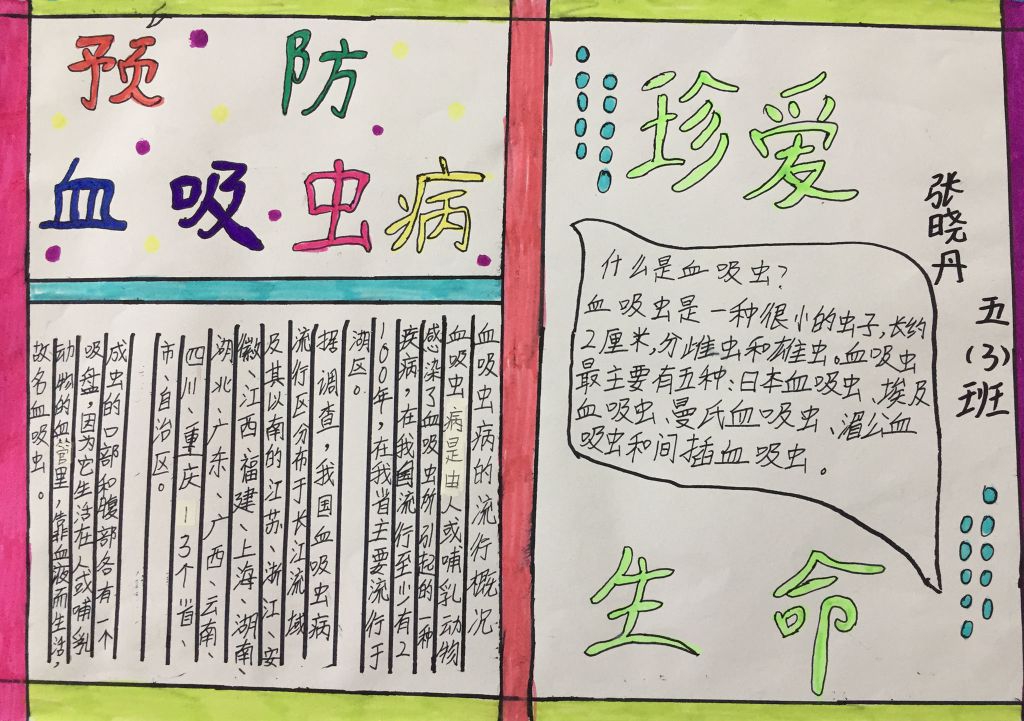 预防
血吸虫病
血吸虫病的流行概况
血吸虫病是由人或哺乳动物
感染了血吸虫所引起的一种
疾病，在我国流行至少有2
100年，在我省主要流行于
湖区。
据调查，我国血吸虫病
流行区分布于长江流域
及其以南的江苏、浙江、安
徽、江西、福建、上海、湖南、
湖北、广东、广西、云南、
四川、重庆13个省、
市、自治区。
成虫的口部和腹部各有一个
吸盘，因为它生活在人或哺乳
动物的血管里，靠血液而生活，
故名血吸虫。
珍爱
张晓丹
五(3)班
什么是血吸虫？
血吸虫是一种很小的虫子，长约
2厘米，分雌虫和雄虫。血吸虫
最主要有五种：日本血吸虫、埃及
血吸虫、曼氏血吸虫、湄公血
吸虫和间插血吸虫。
生命